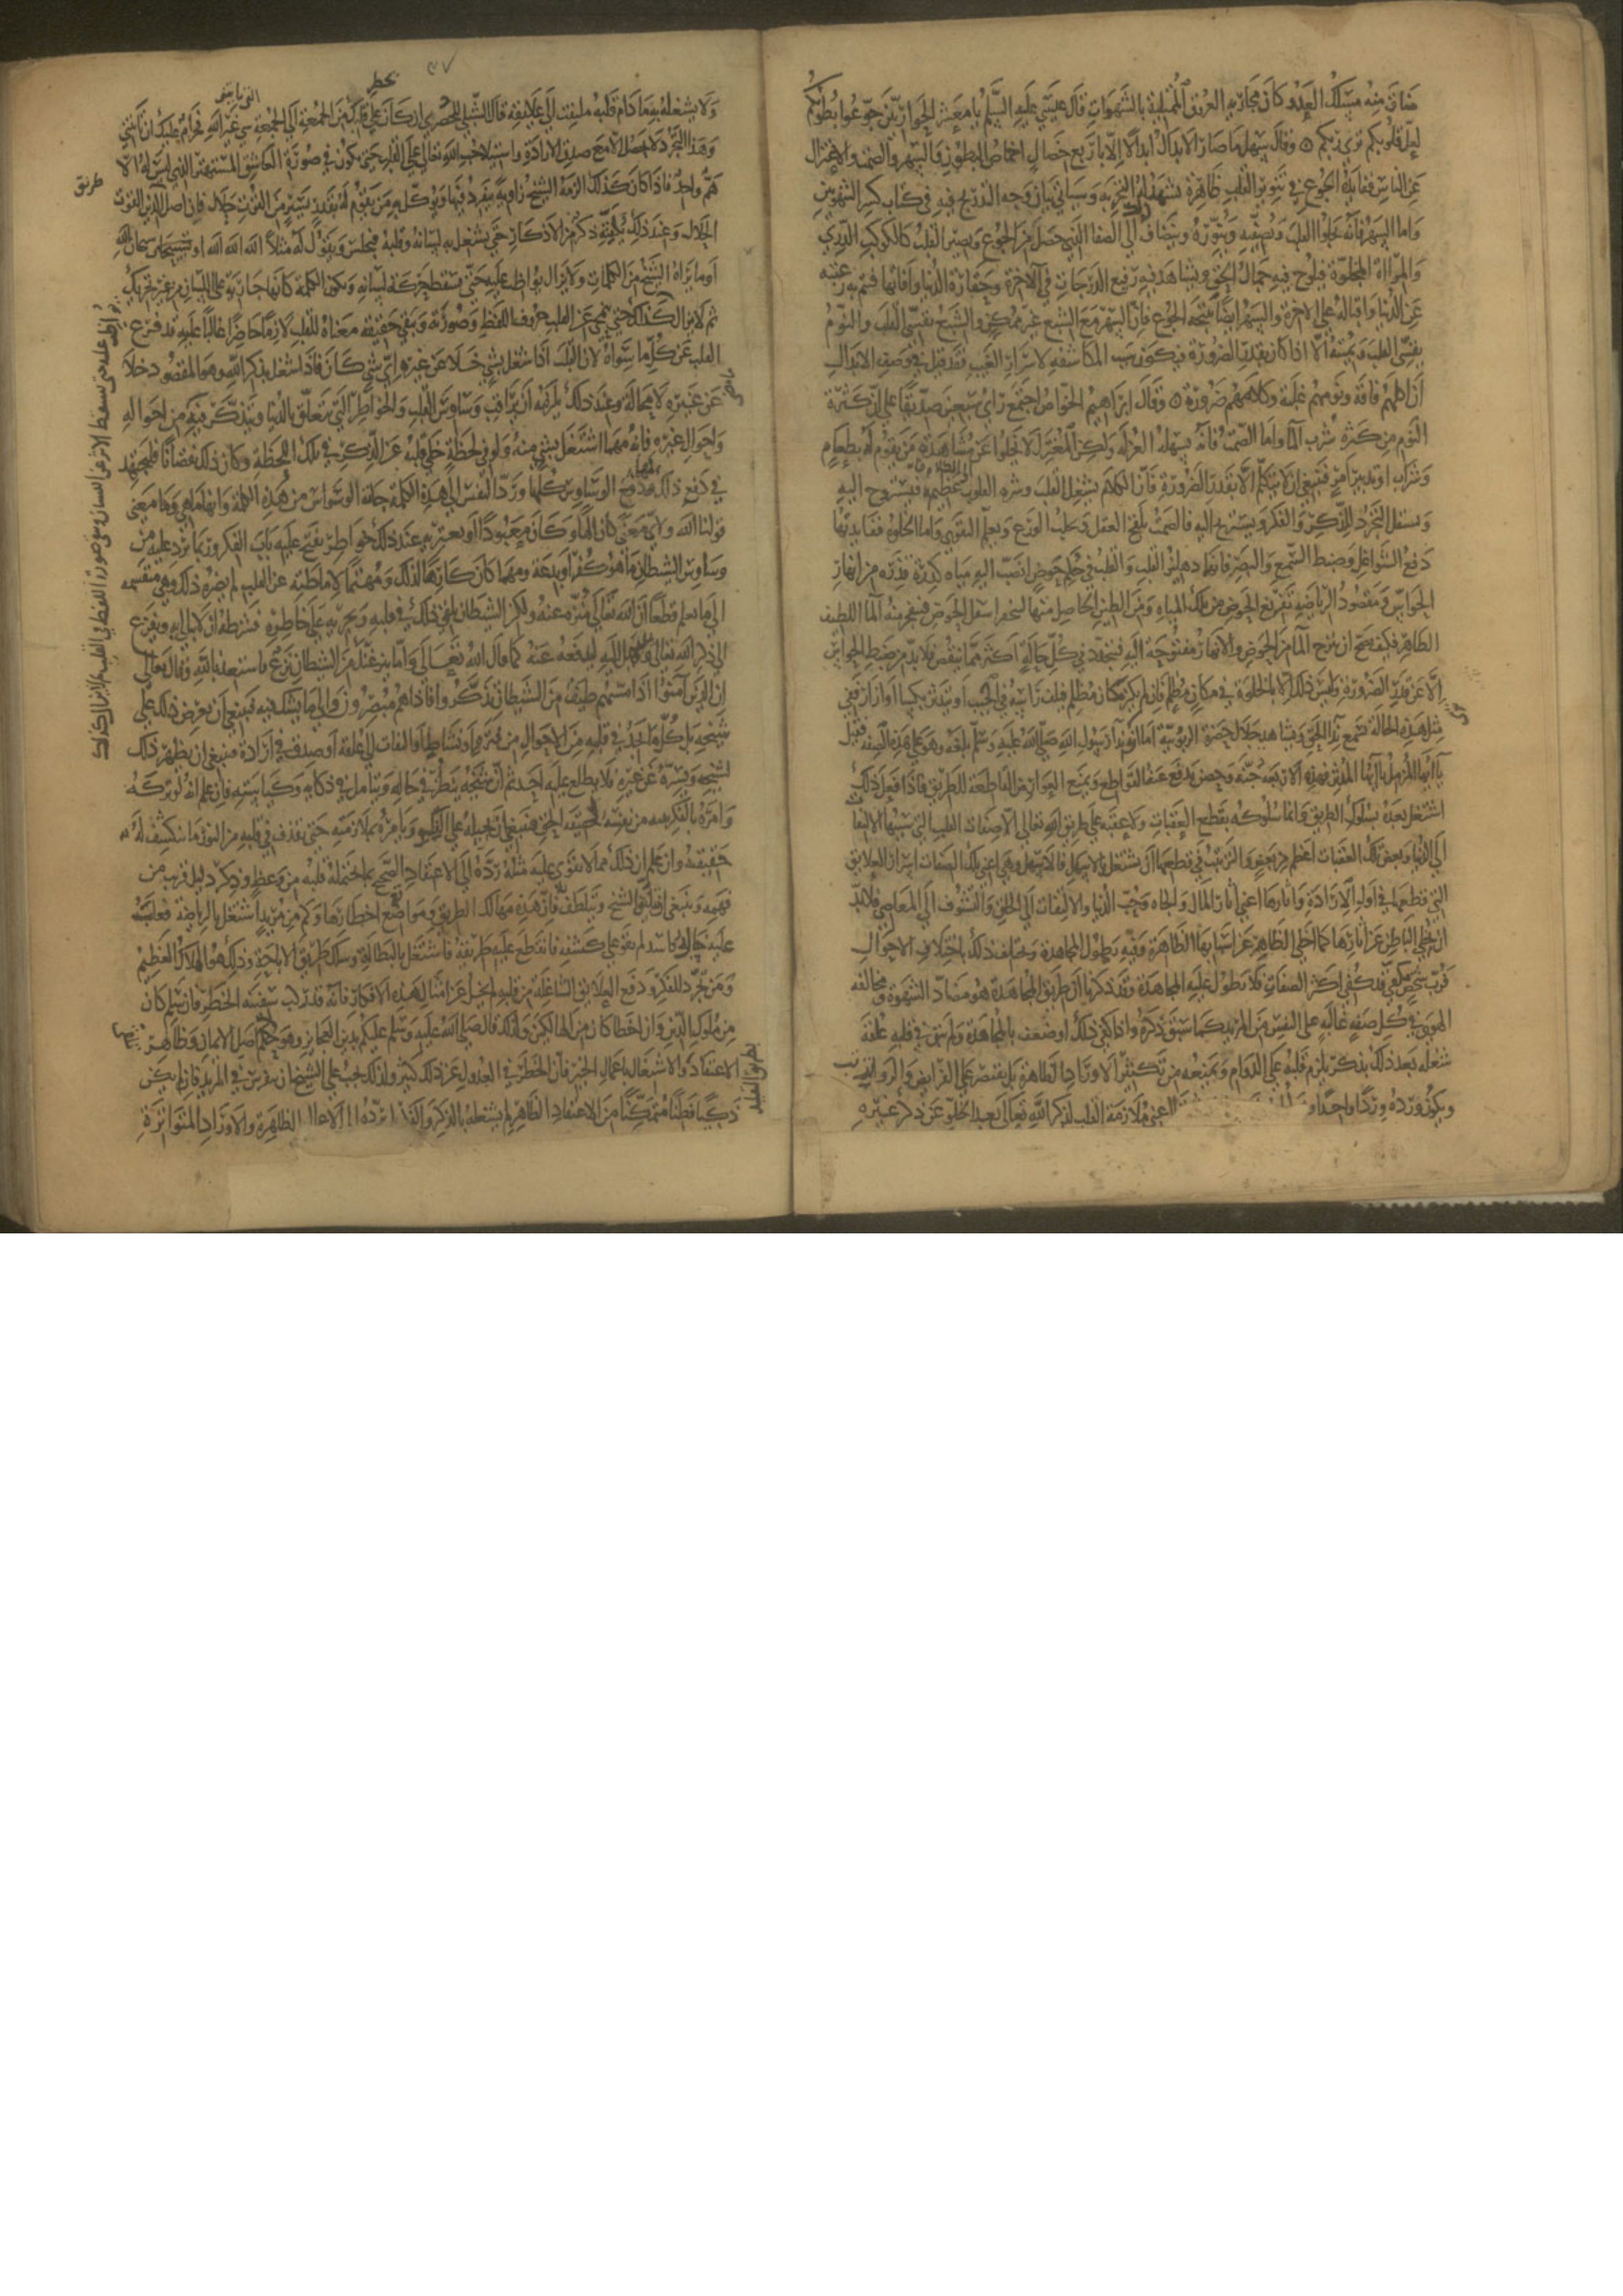 ضاق منه مسلك العدو كان مجاريه العروق الممتلية بالشهوات قال عيسى عليه السلم يا معشر الحواريين جوعوا بطونكم
لعل قلوبكم ترى ربكم وقال سهل ما صار الابدال ابدالا الا باربع خصال اخماص البطون والسهر والصمت والاعتزال
عن الناس ففايدة الجوع في تنوير القلب ظاهرة تشهد لها التجربة وسياتي بيان وجه التدريج فيه في كتاب كسر الشهوتين
واما السهر فانه يجلوا القلب ويصفيه وينوره ويضاف الى الصفا الذي حصل من الجوع ويصير القلب كالكوكب الدري
والمراة المجلوة فيلوح فيه جمال الحق ويشاهد فيه رفيع الدرجات في الاخرة وحقارة الدنيا وافاتها فتتم به رغبته
عن الدنيا واقباله على الاخرة والسهر ايضا نتيجة الجوع فان السهر مع الشبع غير ممكن والشبع يقسي القلب والنوم
يقسي القلب ويميته الا اذا كان بقدر الضرورة فيكون سبب المكاشفه لاسرار الغيب فقد قيل في وصف الابدال
ان اكلهم فاقة ونومهم غلبة وكلامهم ضرورة وقال ابراهيم الخواص اجتمع راي سبعين صديقا على ان كثرة
النوم من كثرة شرب الما واما الصمت فانه يسهله العزلة ولكن المعتزل لا يخلوا عن مشاهدة من يقوم له بطعام
وشراب او تدبير امر فينبغي ان لا يتكلم الا بقدر الضرورة فان الكلام يشغل القلب وشره القلوب الى الكلام عظيم فيستروح اليه
ويستقل التجرد للذكر والفكر ويستريح اليه فالصمت يلقح العقل ويجلب الورع ويعلم التقوى واما الخلوة ففايدتها
دفع الشواغل وضبط السمع والبصر فانهما دهليز القلب والقلب في حكم حوض انصب اليه مياه كدرة قذرة من انهار
الحواس ومقصود الرياضه تفريغ الحوض من تلك المياه ومن الطين الحاصل منها لينحفر اسفل الحوض فينفجر منه الما اللطيف
الطاهر فكيف يصح ان ينزح الما من الحوض والانهار مفتوحه اليه فيتجدد في كل حاله اكثر مما ينقص فلا بد من ضبط الحواس
الا عن قدر الضرورة وليس ذلك الا بالخلوة في مكان مظلم فان لم يكن مكان مظلم فليلف راسه في الجيب او يتدثر بكسا او ازار ففي
مثل هذه الحالة تسمع ندا الحق ويشاهد جلال حضرة الربوبية اما ترى ندا رسول الله صلى الله عليه وسلم بلغه وهو على هذه الصفه فقيل
يا ايها المزمل يا ايها المدثر فهذه الاربعة جنة وحصن يدفع عنه القواطع ويمنع العوارض القاطعة للطريق فاذا فعل ذلك
اشتغل بعده بسلوك الطريق وانما سلوكه بقطع العقبات ولا عقبه على طريق الله تعالى الا صفات القلب التي سببها الالتفات
الى الدنيا وبعض تلك العقبات اعظم من بعض والترتيب في قطعها ان يشتغل بالاسهل فالاسهل وهي اعني تلك الصفات اسرار العلايق
التي قطعها في اول الارادة واثارها اعني اثار المال والجاه وحب الدنيا والالتفات الى الخلق والتشوف الى المعاصي فلا بد
ان يخلي الباطن عن اثارها كما اخلى الظاهر عن اسبابها الظاهرة وفيه يطول المجاهدة ويختلف ذلك باختلاف الاحوال
فرب شخص قد كفى اكثر الصفات فلا تطول عليه المجاهدة وقد ذكرنا ان طريق المجاهدة هو مضادة الشهوة ومخالفة
الهوى في كل صفه غالبه على النفس من المريد كما سبق ذكره واذا كفى ذلك او ضعف بالمجاهدة ولم يبق في قلبه علقه
شغله بعد ذلك بذكر يلزم قلبه على الدوام ويمنعه من تكثير الاوراد الظاهرة بل يقتصر على الفرايض والرواتب
ويكون ورده وردا واحدا و
اعني ملازمة القلب لذكر الله تعالى بعد الخلو عن ذكر غيره
٣٧
بخطر
ولا يشغله به ما دام قلبه ملتفتا الى علايقه قال الشبلي للحصري ان كان يخطر على قلبك من الجمعة التي تاتيني الى الجمعة شي غير الله فحرام عليك ان تاتيني
وهذا التجرد لا يحصل الا مع صدق الارادة واستيلا حب الله تعالى على القلب حتى يكون في صورة العاشق المستهتر الذي ليس له الا
هم واحد فاذا كان كذلك الزمه الشيخ زاوية ينفرد فيها ويوكل به من يقوم له بقدر يسير من القوت حلال فان اصل الدين القوت
الحلال وعند ذلك يلقنه ذكرا من الاذكار حتى يشغل به لسانه وقلبه فيجلس ويقول له مثلا الله الله الله او سبحان الله سبحان الله
او ما يراه الشيخ من الكلمات ولا يزال يواظب عليه حتى تسقط حركة لسانه وتكون الكلمة كانها جارية على اللسان من غير تحريك
ثم لا يزال كذلك حتى يمحي عن القلب حروف اللفظ وصورته وتبقى حقيقة معناه للقلب لازما حاضرا غالبا عليه قد فرع
القلب عن كل ما سواه لان القلب اذا شغل بشي خلا عن غيره اي شي كان فاذا شغل بذكر الله وهو المقصود خلا
عن غيره لا محالة وعند ذلك يلزمه ان يراقب وساوس القلب والخواطر التي تتعلق بالدنيا ويتذكر فيه من احواله
واحوال غيره فانه مهما اشتغل بشي منه ولو في لحظة خلى قلبه عن الذكر في تلك اللحظة وكان ذلك نقصانا فليجتهد
في دفع ذلك ومهما دفع الوساوس كلها ورد النفس الى هذه الكلمة جاته الوسواس من هذه الكلمة وانها ما هي وما معنى
قولنا الله ولاي معنى كان الها وكان معبودا ويعتريه عند ذلك خواطر يفتح عليه باب الفكر وربما يرد عليه من
وساوس الشيطان ما هو كفر او بدعة ومهما كان كارها لذلك ومتهيا لاماطته عن القلب لم يضره ذلك وهي منقسمه
الى ما يعلم قطعا ان الله تعالى منزه عنه ولكن الشيطان يلقي ذلك في قلبه ويجريه على خاطره فشرطه ان لا يبالي به ويفزع
الى ذكر الله تعالى ويبتهل اليه ليدفعه عنه كما قال الله تعالى واما ينزغنك من الشيطان نزغ فاستعذ بالله وقال تعالى
ان الذين آمنوا اذا مسهم طيف من الشيطان تذكروا فاذا هم مبصرون والى ما يشك فيه فينبغي ان يعرض ذلك على
شيخه بل كل ما يجد في قلبه من الاحوال من فترة او نشاط او التفات الى علقة او صدق في ارادة فينبغي ان يظهر ذلك
لشيخه ويستره عن غيره فلا يطلع عليه احد ثم ان شيخه ينظر في حاله ويتامل في ذكايه وكياسته فان علم انه لو تركه
وامره بالفكر تنبه من نفسه لحقيقة الحق فينبغي ان يحيله على الفكر ويامره بملازمته حتى يقذف في قلبه من النور ما ينكشف له
حقيقته وان علم ان ذلك مما لا يقوى عليه مثله رده الى الاعتقاد الصحيح بما يحتمله قلبه من وعظ وذكر ودليل قريب من
فهمه وينبغي ان يتانق الشيخ ويتلطف فان هذه مهالك الطريق ومواضع اخطارها وكم من مريد اشتغل بالرياضة فغلب
عليه خيال فاسد لم يقو على كشفه فانقطع عليه طريقه فاشتغل بالبطالة وسلك طريق الاباحة وذلك هو الهلاك العظيم
ومن تجرد للفكر ودفع العلايق الشاغلة من قلبه لم يخل عن امثال هذه الافكار فانه قد ركب سفينه الخطر فان سلم كان
من ملوك الدين وان اخطا كان من الهالكين ولذلك قال صلى الله عليه وسلم عليكم بدين العجايز وهو تلقي اصل الايمان وظاهر
الاعتقاد والاشتغال باعمال الخير فان الخطر في العدول عن ذلك كثير ولذلك يجب على الشيخ ان يتفرس في المريد فان لم يكن
ذكيا فطنا متمكنا من الاعتقاد الظاهر لم يشغله بالذكر والفكر بل يرده الى الاعمال الظاهرة والاوراد المتواترة
طريق
يواظب عليه حتى يسقط الاثر عن اللسان وتبقى صورة اللفظ في القلب ثم لا يزال كذلك
بطريق التقليد